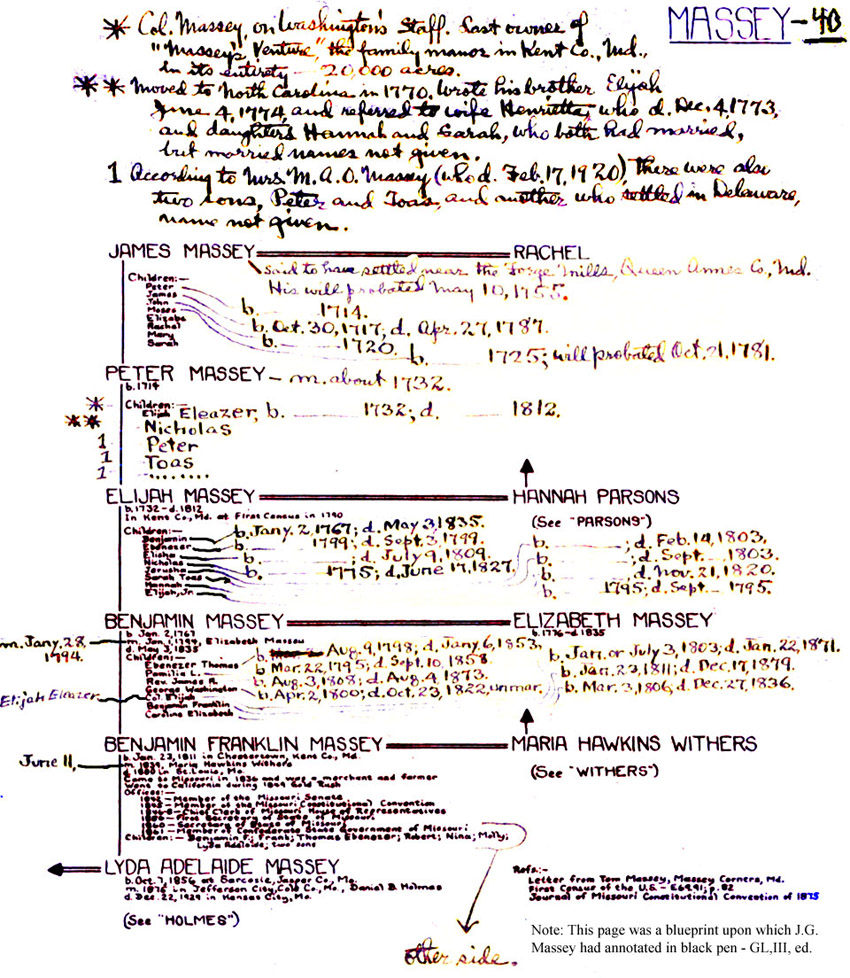 MASSEY-40
* Col. Massey, on Washington's Staff. Last owner of
"Massey's Venture," the family manor in Kent Co., Md.,
in its entirety — 20,000 acres.
** Moved to North Carolina in 1770. Wrote his brother Elijah
June 4, 1774, and referred to wife Henrietta, who d. Dec. 4, 1773,
and daughters Hannah and Sarah, who both had married,
but married names not given.
1 According to Mrs. M.A.O. Massey (who d. Feb. 17, 1920), there were also
two sons, Peter and Toas, and another who settled in Delaware,
name not given.
JAMES MASSEY RACHEL
said to have settled near the "Forge" Mills, Queen Annes Co., Md.
His will probated May 10, 1755.
Children:-
Peter b. 1714.
James b. Oct. 30, 1717; d. Apr. 27, 1787.
John b. 1720.
Moses b. 1725; will probated Oct. 21, 1781.
Elizabe
Rachel
Mary
Sarah
PETER MASSEY - m. about 1732.
b. 1714
* Children:-
Elijah Eleazer, b. 1732; d. 1812.
** Nicholas
1 Peter
1 Toas
1 ........
ELIJAH MASSEY HANNAH PARSONS
b. 1732 - d. 1812 (See "PARSONS")
In Kent Co., Md. at First Census in 1790
Children:-
Benjamin b. Jany. 2, 1767; d. May 3, 1835.
Ebenezer b. 1799; d. Sept. 3, 1799.
Elisha b. ; d. July 9, 1809.
Nicholas b. 1775; d. June 17, 1827
Jerusha b. ; d. Feb. 14, 1803.
Sarah Toas b. ; d. Sept. 1803.
Hannah b. ; d. Nov. 21, 1820.
Elijah, Jr. b. 1795; d. Sept. 1795.
BENJAMIN MASSEY ELIZABETH MASSEY
b. Jan. 2, 1767 b. 1776 - d. 1835
m. Jany. 28, 1794. m. Jan. 1, 1799, Elizabeth Massey
d. May 3, 1835
Children:-
Ebenezer Thomas b. Aug. 9, 1798; d. Jany. 6, 1853.
Pamilia L. b. Mar. 22, 1795; d. Sept. 10, 1858.
Rev. James A. b. Aug. 3, 1808; d. Aug. 4, 1873.
George Washington b. Apr. 2, 1800; d. Oct. 23, 1822, unmar.
Elijah Eleazer Col. Elijah b. Jan. or July 3, 1803; d. Jan. 22, 1871.
Benjamin Franklin b. Jan. 23, 1811; d. Dec. 17, 1879.
Caroline Elizabeth b. Mar. 3, 1806, d. Dec. 27, 1836.
BENJAMIN FRANKLIN MASSEY MARIA HAWKINS WITHERS
b. Jan. 23, 1811 in Chestertown, Kent Co., Md. (See "WITHERS")
June 11, m. 1839, Maria Hawkins Withers
d. 1880 in St. Louis, Mo.
Came to Missouri in 1836 and was a merchant and farmer
Went to California during 1849 Gold Rush
Offices:-
Member of the Missouri Senate
Member of the Missouri Constitutional Convention
Chief Clerk of Missouri House of Representatives
First Secretary of State of Missouri
Secretary of State of Missouri
1861 - Member of Confederate State Government of Missouri
Children:- Benjamin F.; Frank; Thomas Ebenezer; Robert; Nina; Molly;
Lyda Adelaide; two sons
other side.
LYDA ADELAIDE MASSEY
b. Oct. 7, 1856 at Sarcoxie, Jasper Co., Mo.
m. 1876 in Jefferson City, Cole Co., Mo., Daniel B. Holmes
d. Dec. 22, 1929 in Kansas City, Mo.
(See "HOLMES")
Refs.:-
Letter from Tom Massey, Massey Corners, Md.
First Census of the U.S. - E6991; p. 82
Journal of Missouri Constitutional Convention of 1875
Note: This page was a blueprint upon which J.G.
Massey had annotated in black pen - GL,III, ed.